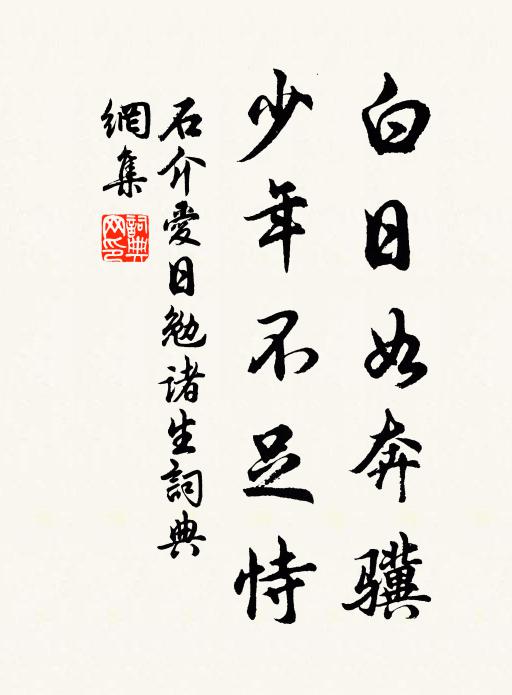 白日如奔骥
少年不足恃
石介愛日勉诸生詞典
網集
詞典
网印